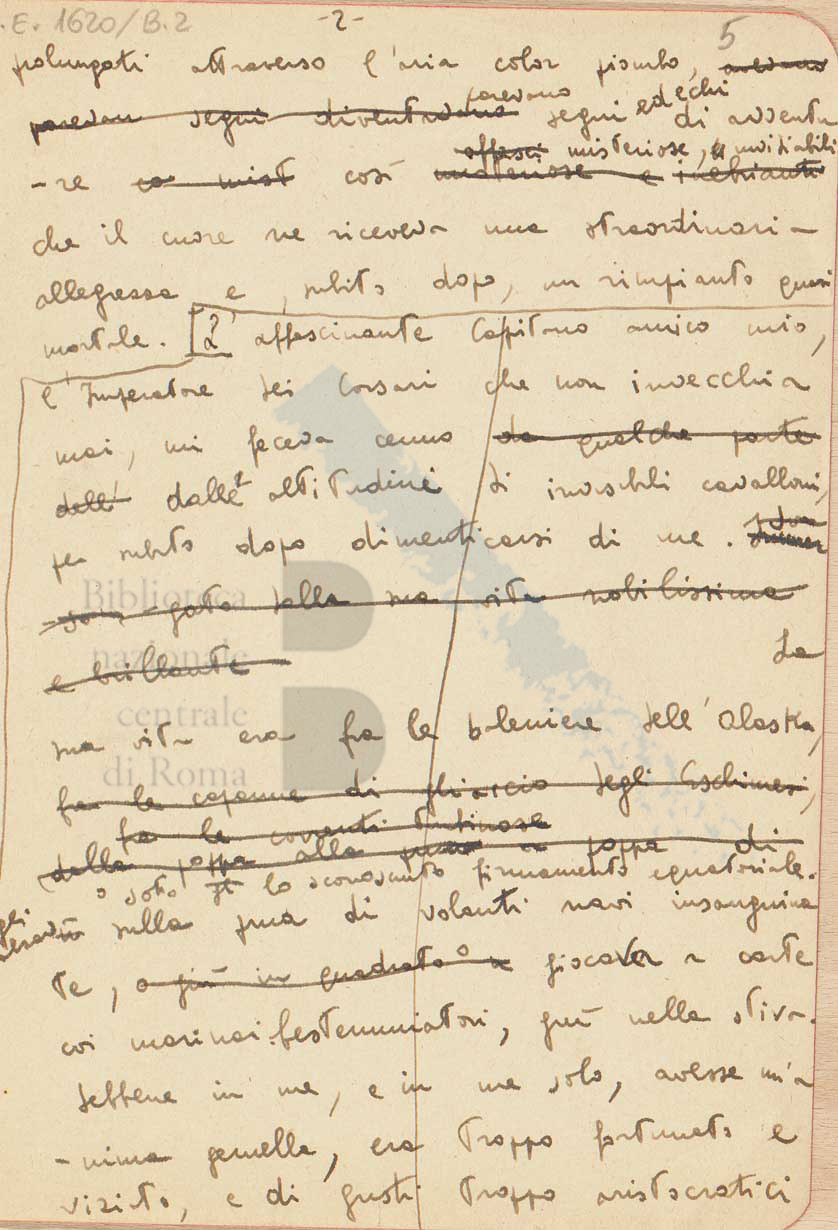 .E. 1620/B.2
-2-
5
prolungati attraverso l'aria color piombo, avevano
parevano
parevan segni diventavano segni ed echi di avventu
affasci misteriose, e invidiabili
-re co mist così misteriose e inebrianti
che il cuore ne riceveva una straordinari-
allegrezza e, subito dopo, un rimpianto quasi
mortale. [L'affascinante Capitano amico mio,
l'Imperatore dei Corsari che non invecchia
mai, mi faceva cenno da qualche parte
dell' dalle altitudini di invisibili cavalloni,
per subito dopo dimenticarsi di me.
gato dalla sua vita nobilissima
e brillante La
sua vita era fra le baleniere dell'Alaska,
fra le capanne di ghiaccio degli Eschimesi,
fra le correnti
dalla poppa alla prua poppa di
o sotto lo sconosciuto firmamento equatoriale.
Egli
sulla prua di volanti navi insanguina
te, o giù in quadrato o giocava a carte
coi marinai bestemmiatori, giù nella stiva.
Sebbene in me, e in me solo, avesse un'a
-nima gemella, era troppo fortunato e
viziato, e di gusti troppo aristocratici
Biblioteca
nazionale
centrale
di Roma